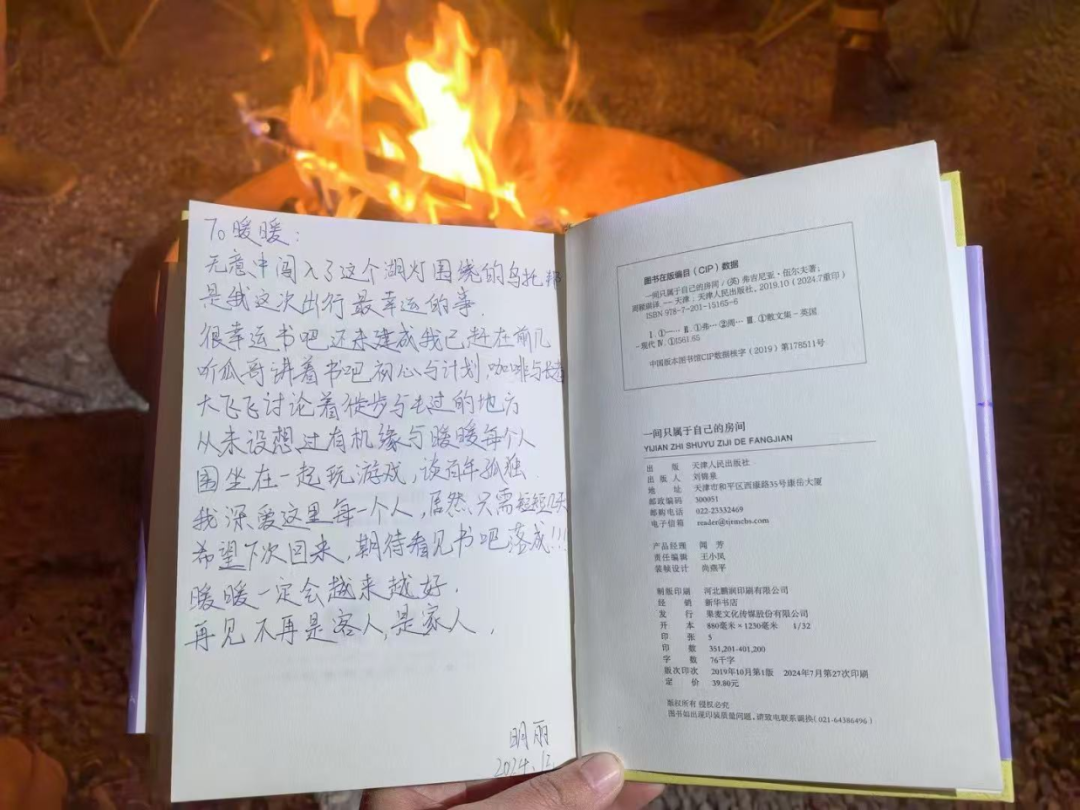 To 暖暖：
无意中闯入了这个湖灯围绕的乌托邦
是我这次出行最幸运的事.
很幸运书吧还未建成我已赶在前几
听狐哥讲着书吧初心与计划，咖啡与
大飞飞讨论着徒步与去过的地方
从未设想过有机缘与暖暖每个人
围坐在一起玩游戏，谈百年孤独.
我深爱这里每一个人，居然只需短短几天
希望下次回来，期待看见书吧落成!!!
暖暖一定会越来越好.
再见不再是客人，是家人.
明丽
2024.12
图书在版编目（CIP）数据
一间只属于自己的房间 /（英）弗吉尼亚·伍尔夫著；
译. -- 天津：天津人民出版社，2019.10（2024.7重印）
ISBN 978-7-201-15165-6
Ⅰ.①一… Ⅱ.①弗…②周… Ⅲ.①散文集－英国
－现代 Ⅳ.①I561.65
中国版本图书馆CIP数据核字（2019）第178511号
一间只属于自己的房间
YIJIAN ZHI SHUYU ZIJI DE FANGJIAN
出 版 天津人民出版社
出 版 人 刘锦泉
地 址 天津市和平区西康路35号康岳大厦
邮政编码 300051
邮购电话 022-23332469
电子信箱 reader@tjrmcbs.com
产品经理 闻 芳
责任编辑 王小凤
装帧设计 尚燕平
制版印刷 河北鹏润印刷有限公司
经 销 新华书店
发 行 果麦文化传媒股份有限公司
开 本 880毫米×1230毫米 1/32
印 张 5
印 数 351,201-401,200
字 数 76千字
版次印次 2019年10月第1版 2024年7月第27次印刷
定 价 39.80元
版权所有 侵权必究
图书如出现印装质量问题，请致电联系调换（021-64386496）